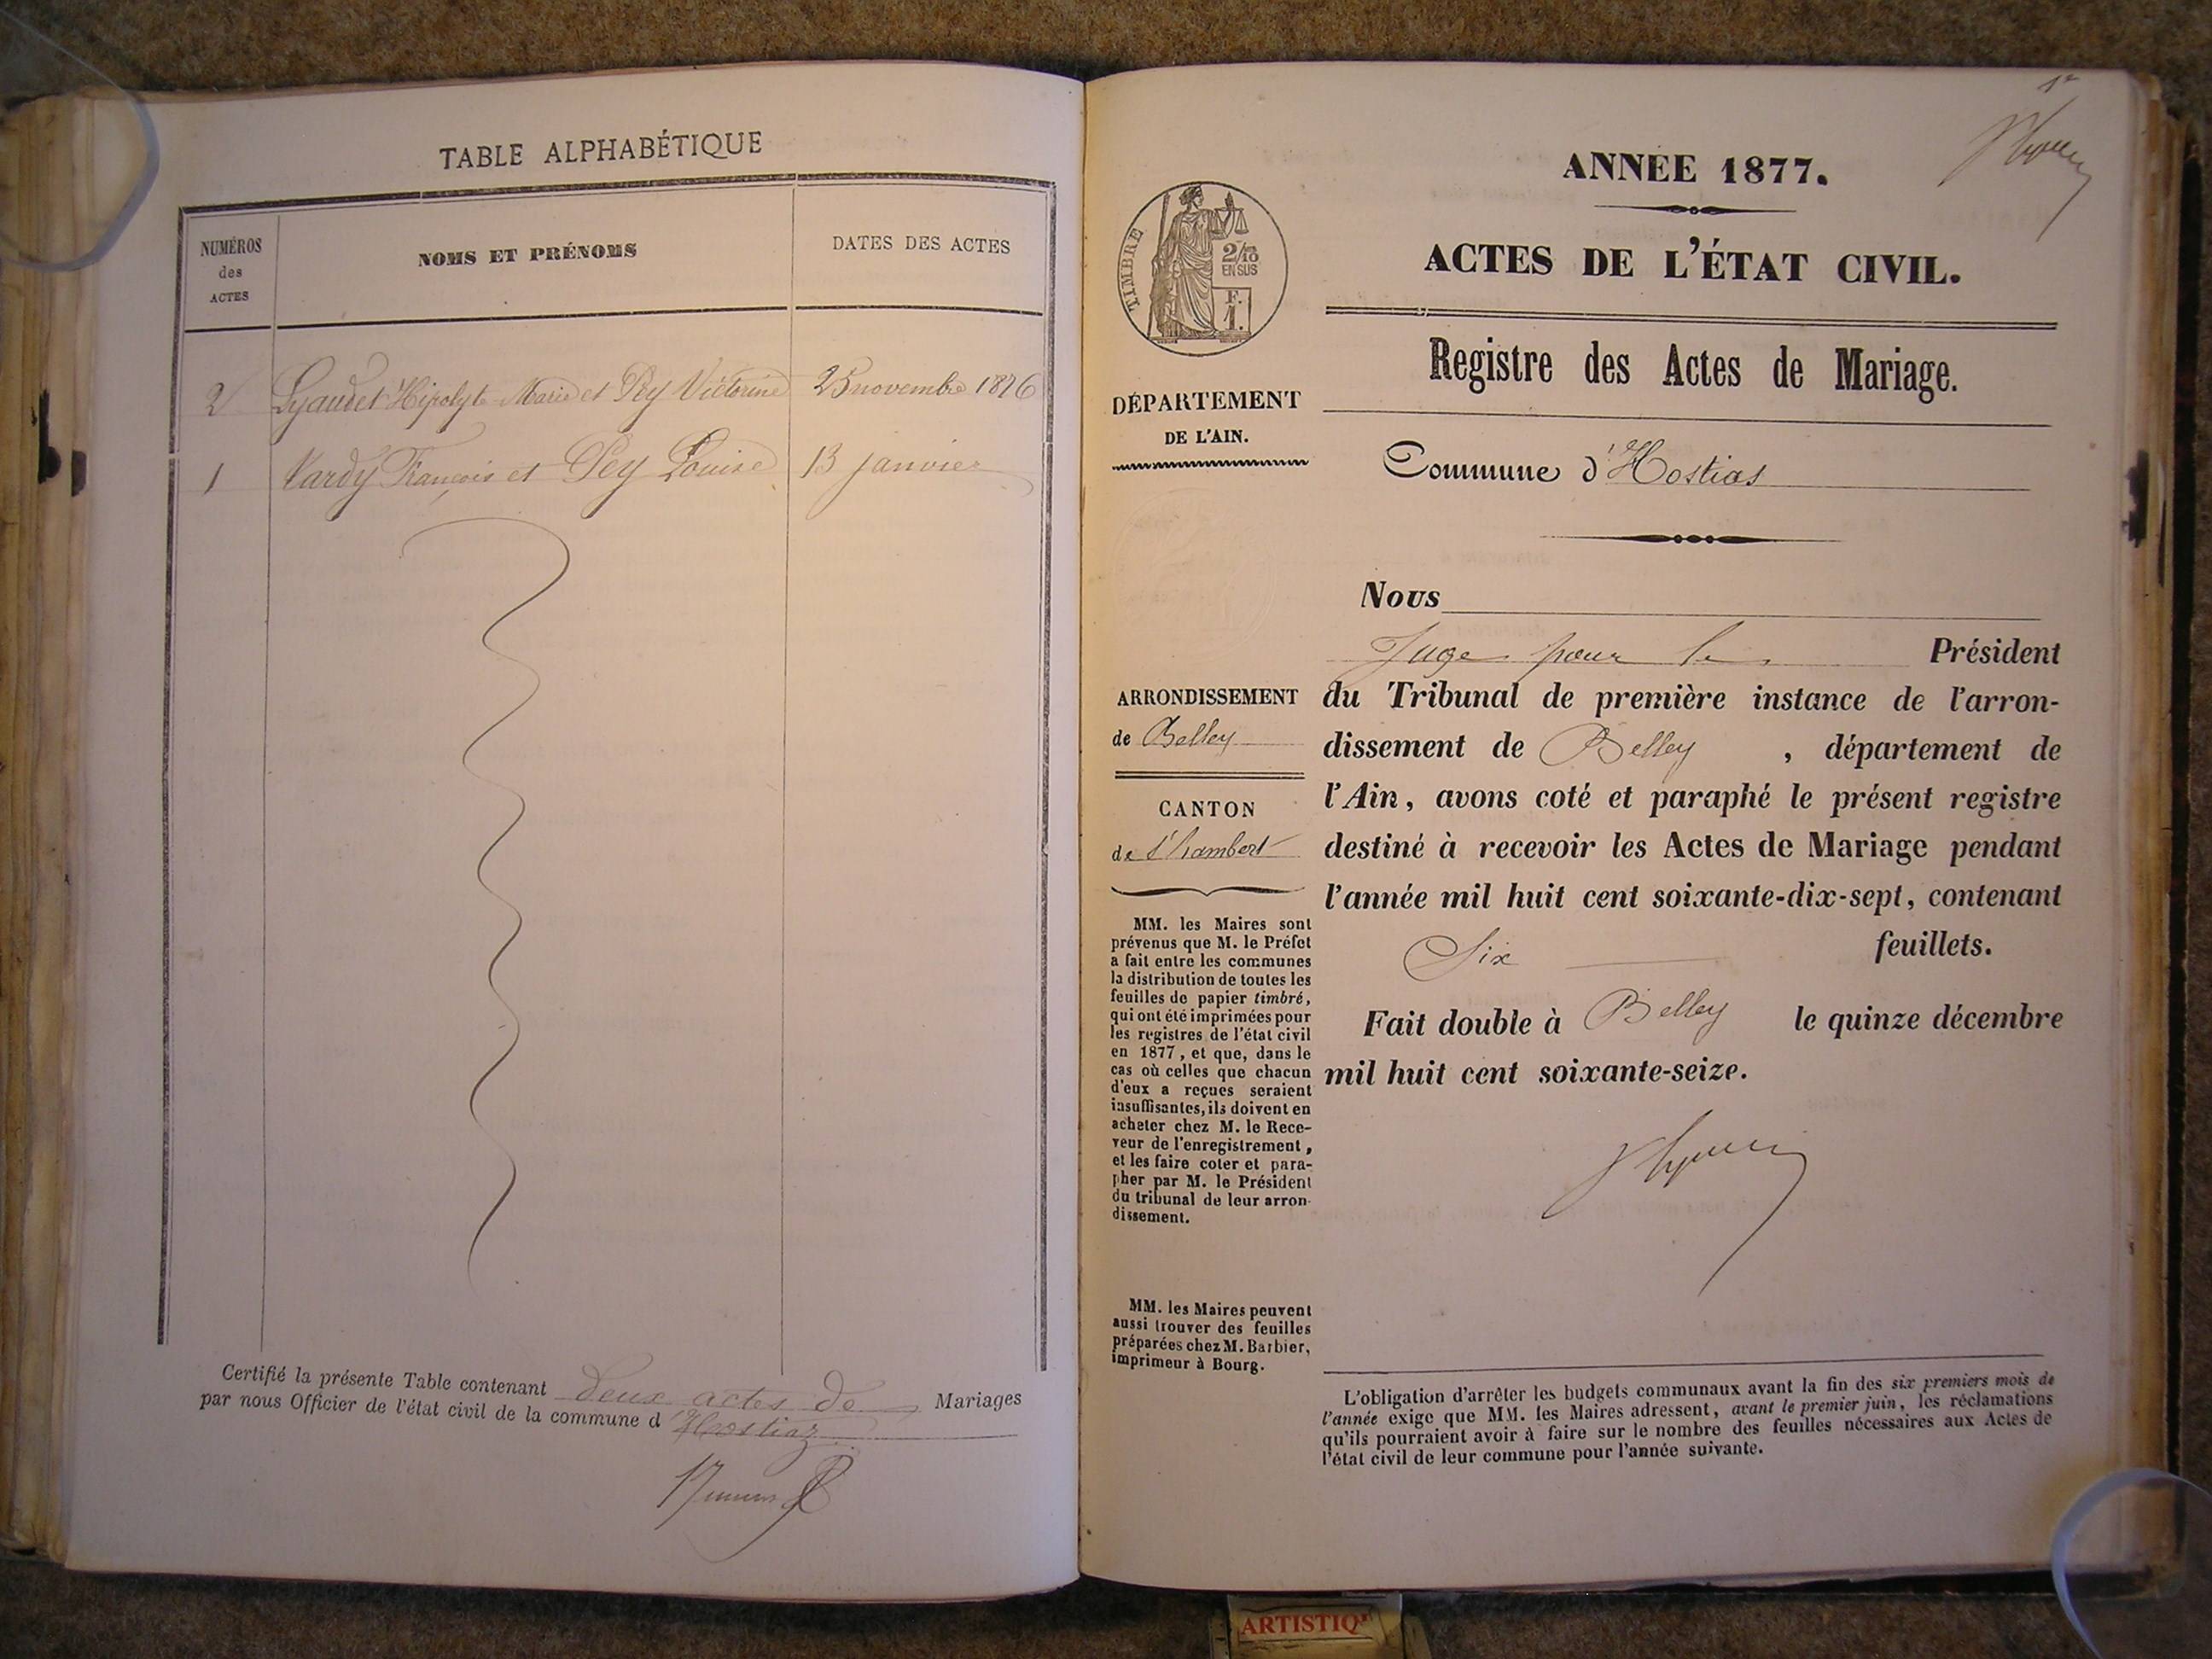 TABLE ALPHABÉTIQUE
NUMÉROS
des
ACTES
NOMS ET PRÉNOMS
DATES DES ACTES
2 Lyaudet Hipolyte Marie et Pey Victorine 25 novembre 1876
1 Vardy François et Pey Louise 13 janvier
Certifié la présente Table contenant deux actes de Mariages
par nous Officier de l'état civil de la commune d'Hostiaz
1er
ANNÉE 1877.
ACTES DE L'ÉTAT CIVIL.
Registre des Actes de Mariage.
TIMBRE
2/10
EN SUS
F.
1.
DÉPARTEMENT
DE L'AIN.
Commune d'Hostias
Nous
Juge pour le Président
du Tribunal de première instance de l'arron-
dissement de Belley , département de
l'Ain, avons coté et paraphé le présent registre
destiné à recevoir les Actes de Mariage pendant
l'année mil huit cent soixante-dix-sept, contenant
Six feuillets.
Fait double à Belley le quinze décembre
mil huit cent soixante-seize.
ARRONDISSEMENT
de Belley
CANTON
de St Rambert
MM. les Maires sont
prévenus que M. le Préfet
a fait entre les communes
la distribution de toutes les
feuilles de papier timbré,
qui ont été imprimées pour
les registres de l'état civil
en 1877, et que, dans le
cas où celles que chacun
d'eux a reçues seraient
insuffisantes, ils doivent en
acheter chez M. le Rece-
veur de l'enregistrement,
et les faire coter et para-
pher par M. le Président
du tribunal de leur arron-
dissement.
MM. les Maires peuvent
aussi trouver des feuilles
préparées chez M. Barbier,
imprimeur à Bourg.
L'obligation d'arrêter les budgets communaux avant la fin des six premiers mois de
l'année exige que MM. les Maires adressent, avant le premier juin, les réclamations
qu'ils pourraient avoir à faire sur le nombre des feuilles nécessaires aux Actes de
l'état civil de leur commune pour l'année suivante.
ARTISTIQ